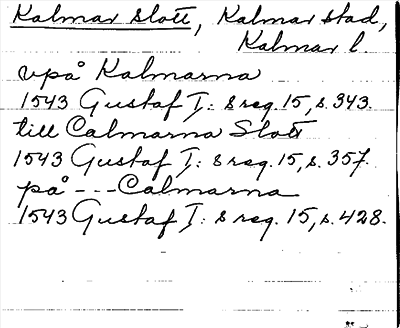 Kalmar Slott, Kalmar stad,
Kalmar l.
vpå Kalmarna
1543 Gustaf I: s reg. 15, s. 343.
till Calmarna Slott
1543 Gustaf I: s reg. 15, s. 357.
på --- Calmarna
1543 Gustaf I: s reg. 15, s. 428.